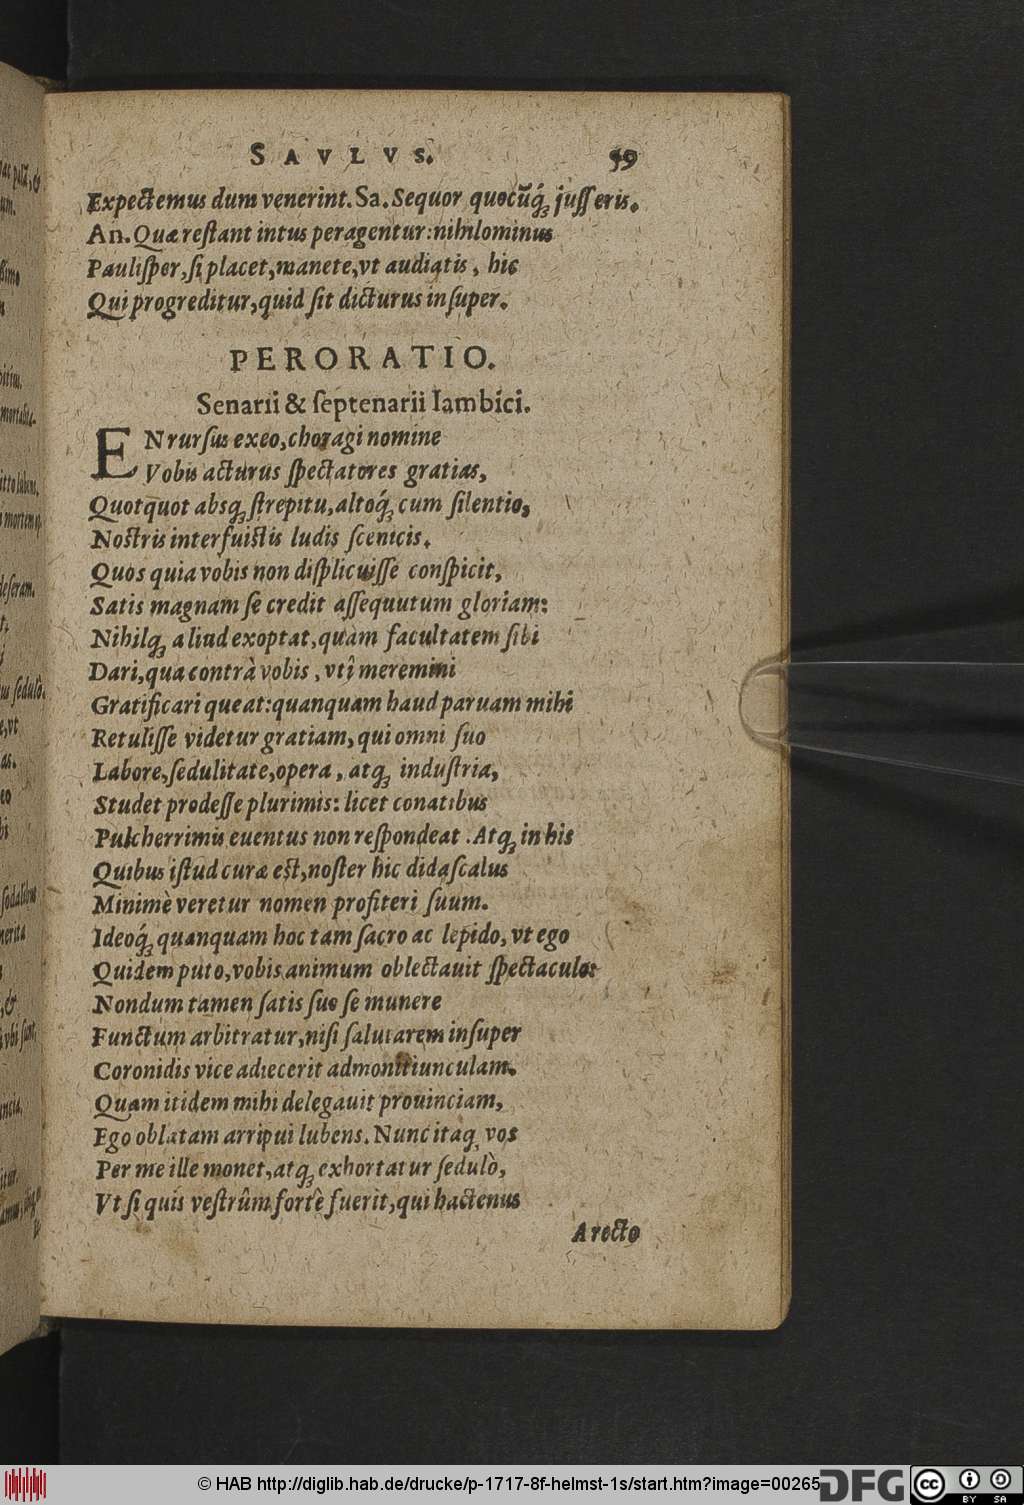 SAVLVS. 59
Expectemus dum venerint. Sa. Sequor quocũq́ꝫ jusseris.
An. Quæ restant intus peragentur: nihilominus
Paulisper, si placet, manete, vt audiatis, hic
Qui progreditur, quid sit dicturus insuper.
PERORATIO.
Senarii & septenarii Iambici.
EN rursus exeo, choragi nomine
Vobis acturus spectatores gratias,
Quotquot absqꝫ strepitu, altoq́ꝫ cum silentio,
Nostris interfuistis ludis scenicis.
Quos quia vobis non displicuisse conspicit,
Satis magnam se credit assequutum gloriam:
Nihilqꝫ aliud exoptat, quàm facultatem sibi
Dari, qua contrà vobis, vti meremini
Gratificari queat: quanquam haud paruam mihi
Retulisse videtur gratiam, qui omni suo
Labore, sedulitate, opera, atqꝫ industria,
Studet prodesse plurimis: licet conatibus
Pulcherrimis euentus non respondeat. Atqꝫ in his
Quibus istud curæ est, noster hic didascalus
Minimè veretur nomen profiteri suum.
Ideoq́ꝫ quanquam hoc tam sacro ac lepido, vt ego
Quidem puto, vobis animum oblectauit spectaculo:
Nondum tamen satis suo se munere
Functum arbitratur, nisi salutarem insuper
Coronidis vice adiecerit admonitiunculam.
Quam itidem mihi delegauit prouinciam,
Ego oblatam arripui lubens. Nunc itaqꝫ vos
Per me ille monet, atqꝫ exhortatur sedulò,
Vt si quis vestrûm fortè fuerit, qui hactenus
A recto
© HAB http://diglib.hab.de/drucke/p-1717-8f-helmst-1s/start.htm?image=00265
DFG
cc BY SA